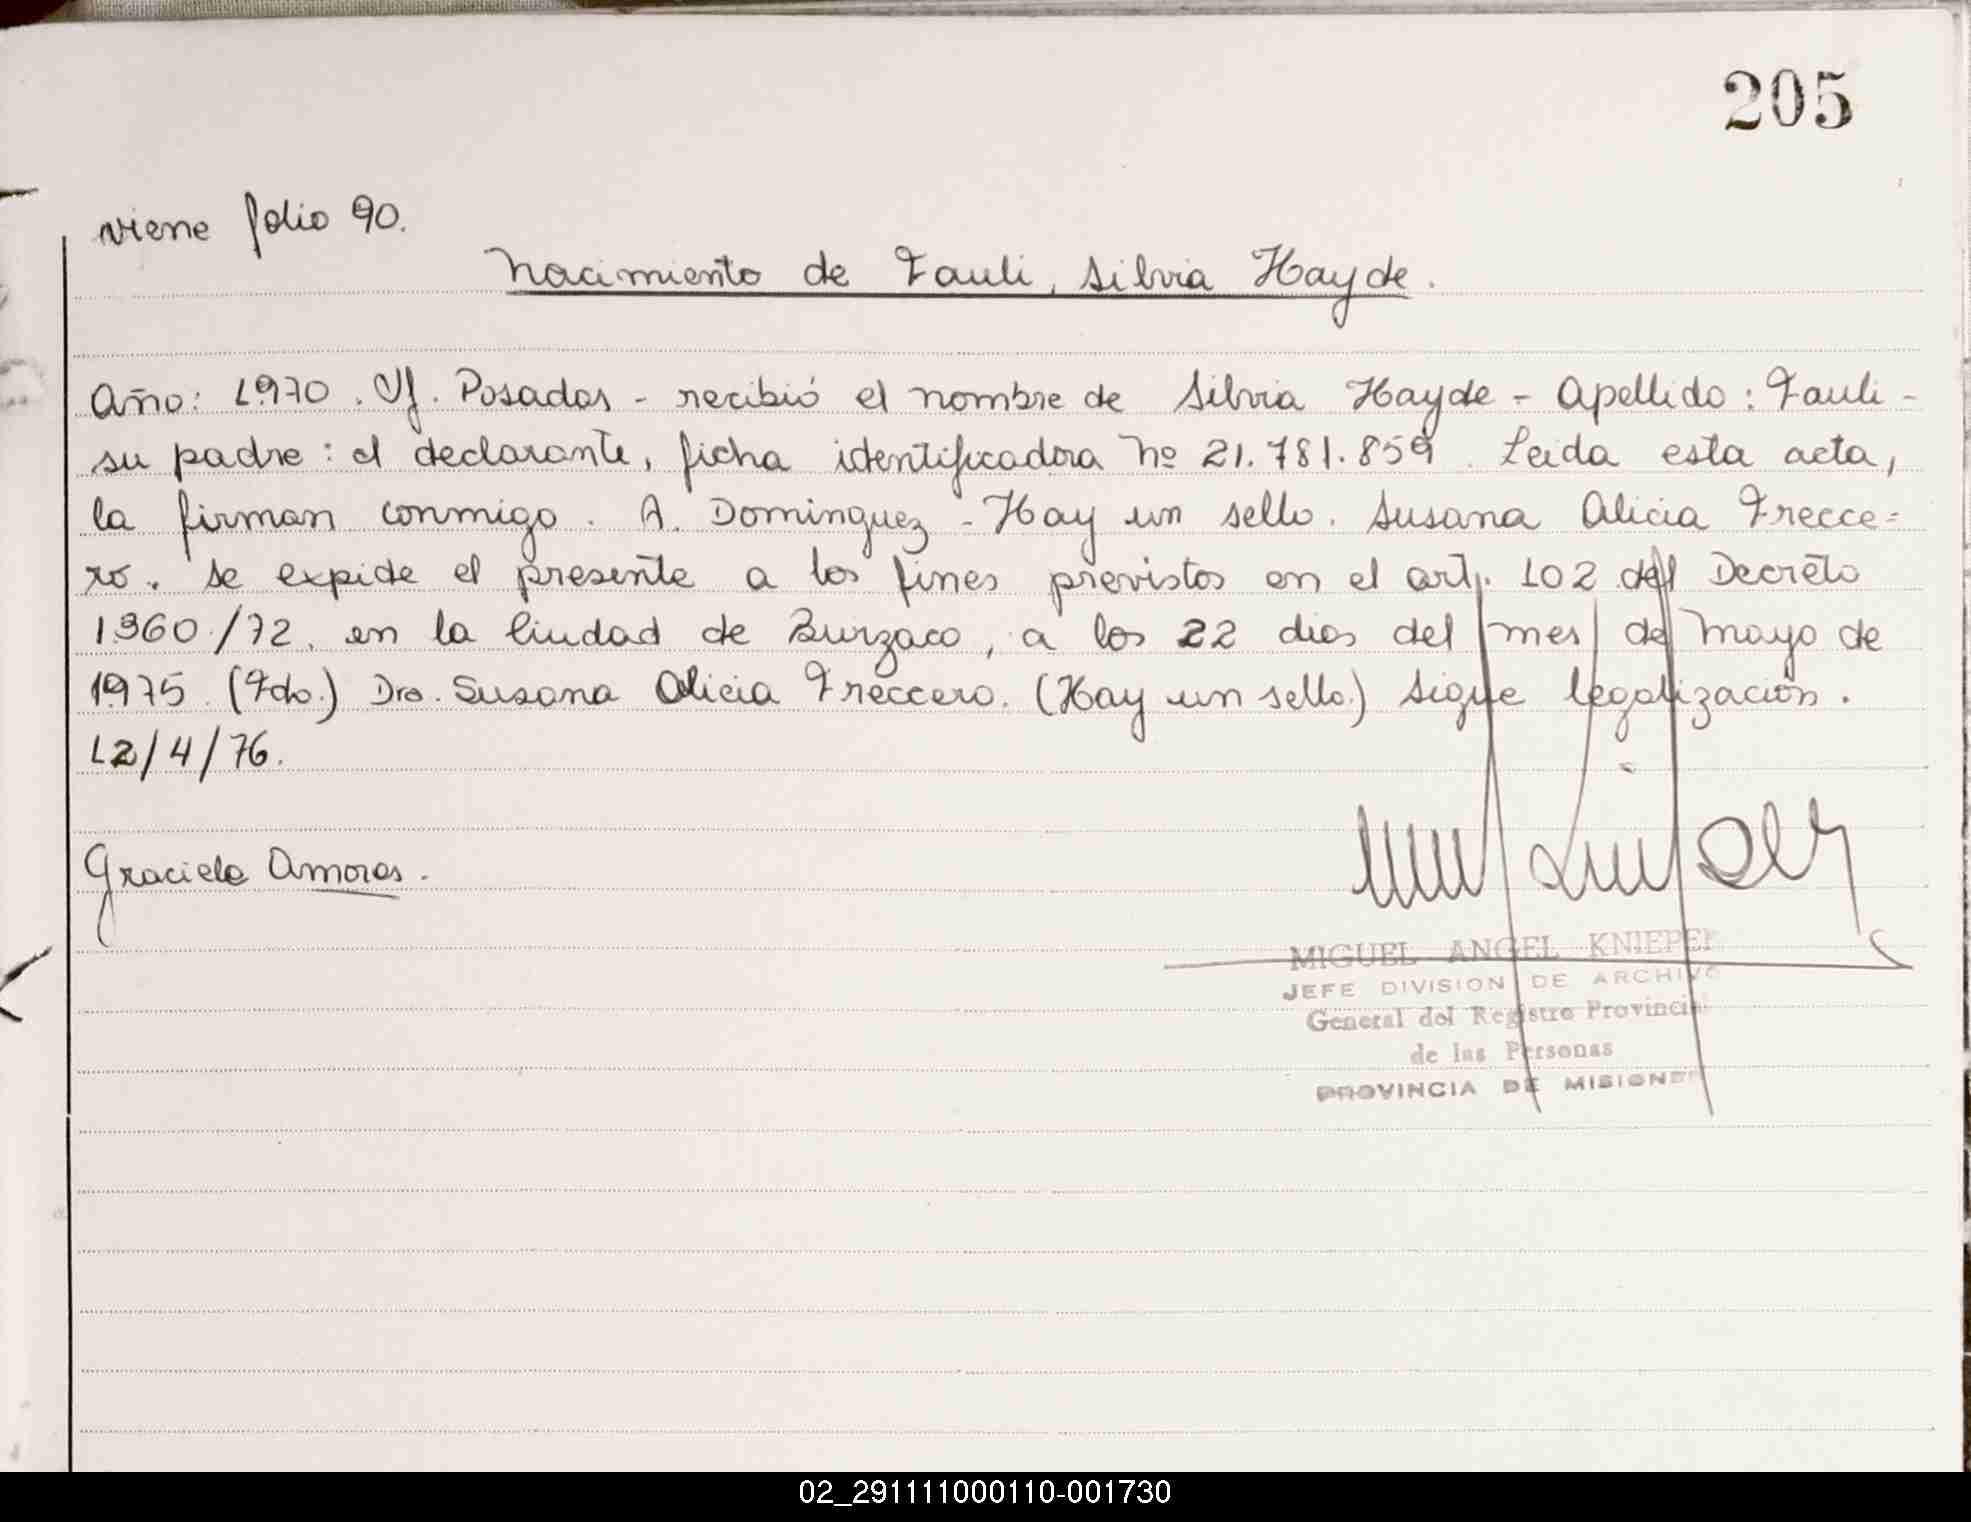 205
viene folio 90.
Nacimiento de Fauli, Silvia Hayde.
Año: 1970. Of. Posadas - recibió el nombre de Silvia Hayde - Apellido: Fauli -
su padre: el declarante, ficha identificadora Nº 21.781.859. Leida esta acta,
la firman conmigo. A. Dominguez - Hay un sello. Susana Alicia Frecce=
ro. Se expide el presente a los fines previstos en el art. 102 del Decreto
1360/72, en la Ciudad de Burzaco, a los 22 dias del mes de Mayo de
1975. (Fdo.) Dra. Susana Alicia Freccero. (Hay un sello.) Sigue legalización.
12/4/76.
Graciela Amores.
MIGUEL ANGEL
JEFE DIVISION DE ARCHIVO
General del Registro Provincial
de las Personas
PROVINCIA DE MISIONES
02_291111000110-001730